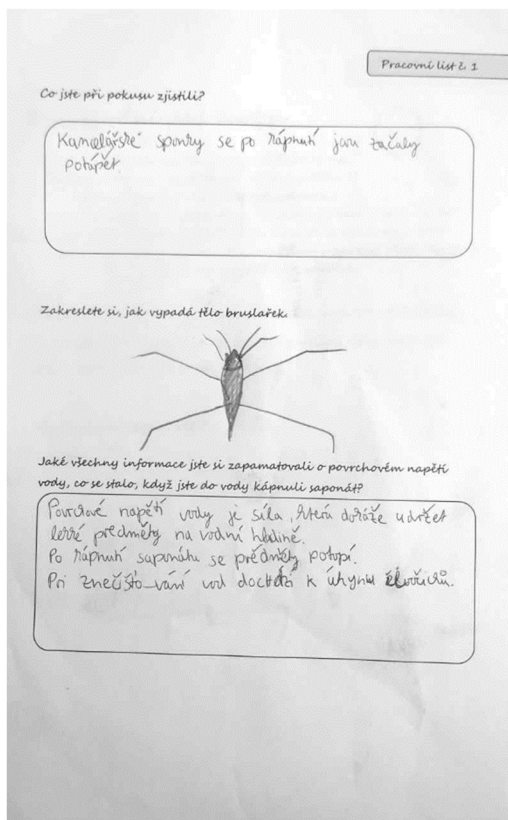 Pracovní list č. 1
Co jste při pokusu zjistili?
Kancelářské sponky se po kápnutí jaru začaly
potápět.
Zakreslete si, jak vypadá tělo bruslařek.
Jaké všechny informace jste si zapamatovali o povrchovém napětí
vody, co se stalo, když jste do vody kápnuli saponát?
Povrchové napětí vody je síla, která dokáže udržet
lehké předměty na vodní hladině.
Po kápnutí saponátu se předměty potopí.
Při znečišťování vod dochází k úhynu živočichů.